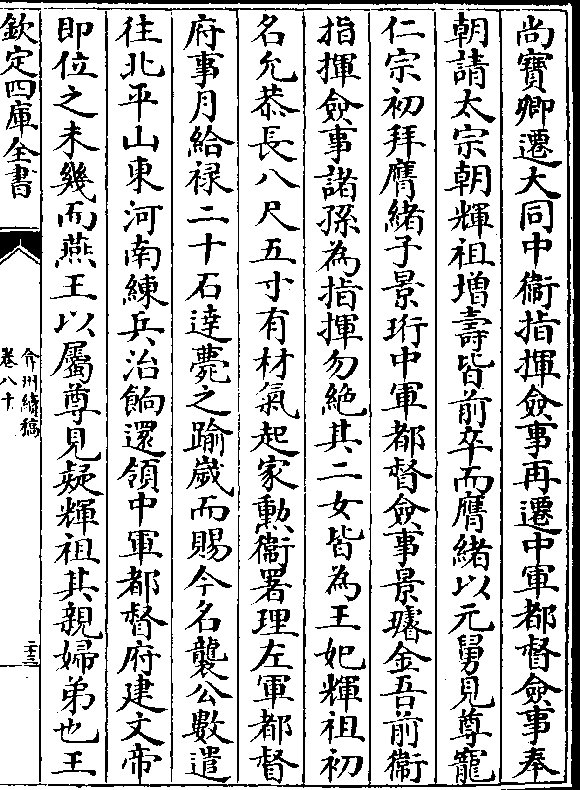 尚寶卿遷大同中衞指揮僉事再遷中軍都督僉事奉
朝請太宗朝輝祖增壽皆前卒而膺緒以元舅見尊寵
仁宗初拜膺緒子景珩中軍都督僉事景璿金吾前衞
指揮僉事諸孫為指揮勿絶其二女皆為王妃輝祖初
名允恭長八尺五寸有材氣起家勲衞署理左軍都督
府事月給禄二十石達薨之踰嵗而賜今名襲公數遣
往北平山東河南練兵治餉還領中軍都督府建文帝
即位之未幾而燕王以屬尊見疑輝祖其親婦弟也王
欽定四庫全書
弇州續稿
卷八十
二十三